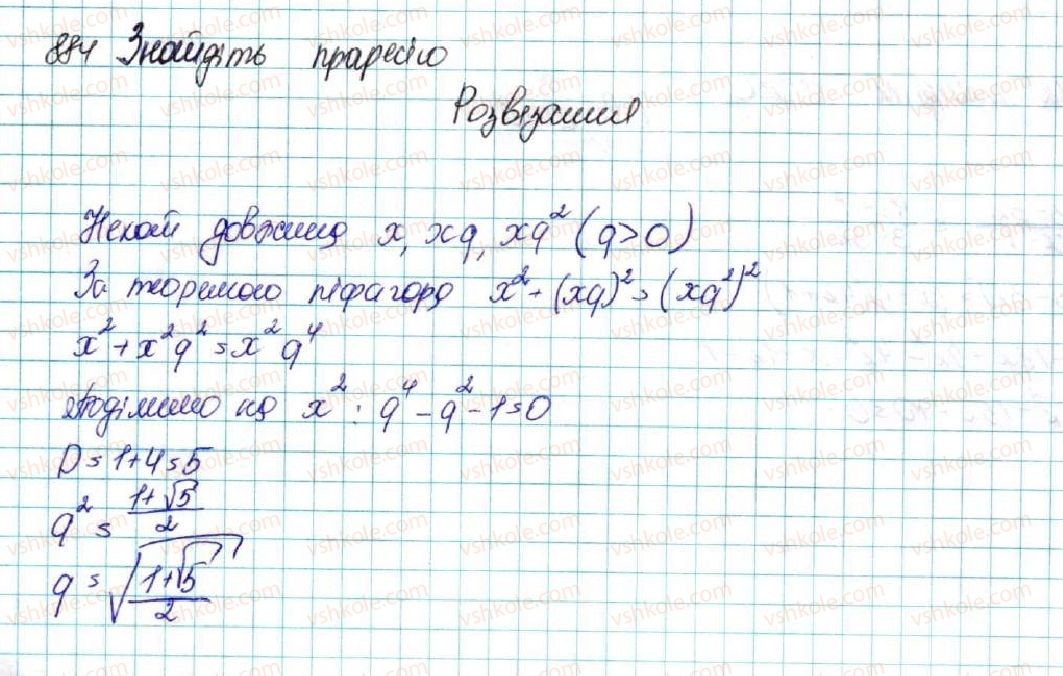 884 Знайдіть прогресію
Розвязання
Нехай довжина x, xq, xq² (q>0)
За теоремою піфагора x² + (xq)² = (xq²)²
x² + x²q² = x²q⁴
Поділимо на x²: q⁴ - q² - 1 = 0
D = 1+4 = 5
q² = (1+√5)/2
q = √((1+√5)/2)